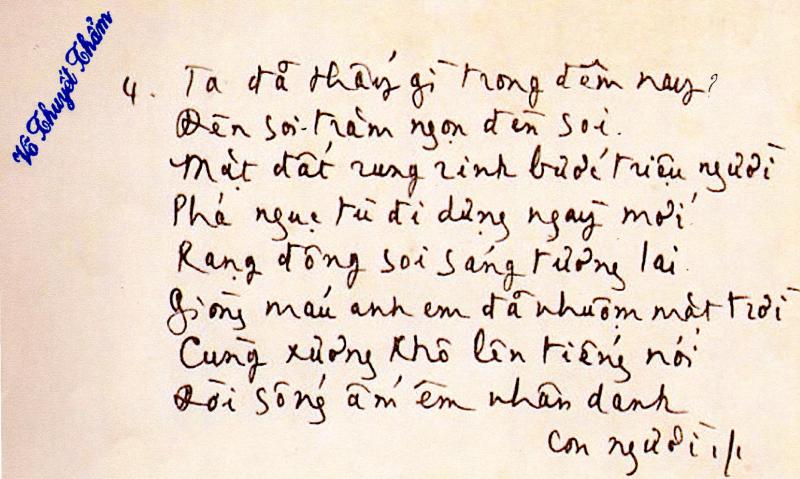 Võ Thuyết Thẩm
4. Ta đã thấy gì trong đêm nay?
Đèn soi trăm ngọn đèn soi.
Mặt đất rung rinh bước triệu người
Phá ngục tù đi dựng ngày mới
Rạng đông soi sáng tương lai.
Giòng máu anh em đã nhuộm mặt trời
Cùng xương khô lên tiếng nói
Đời sống ấm êm nhân danh
con người ./.